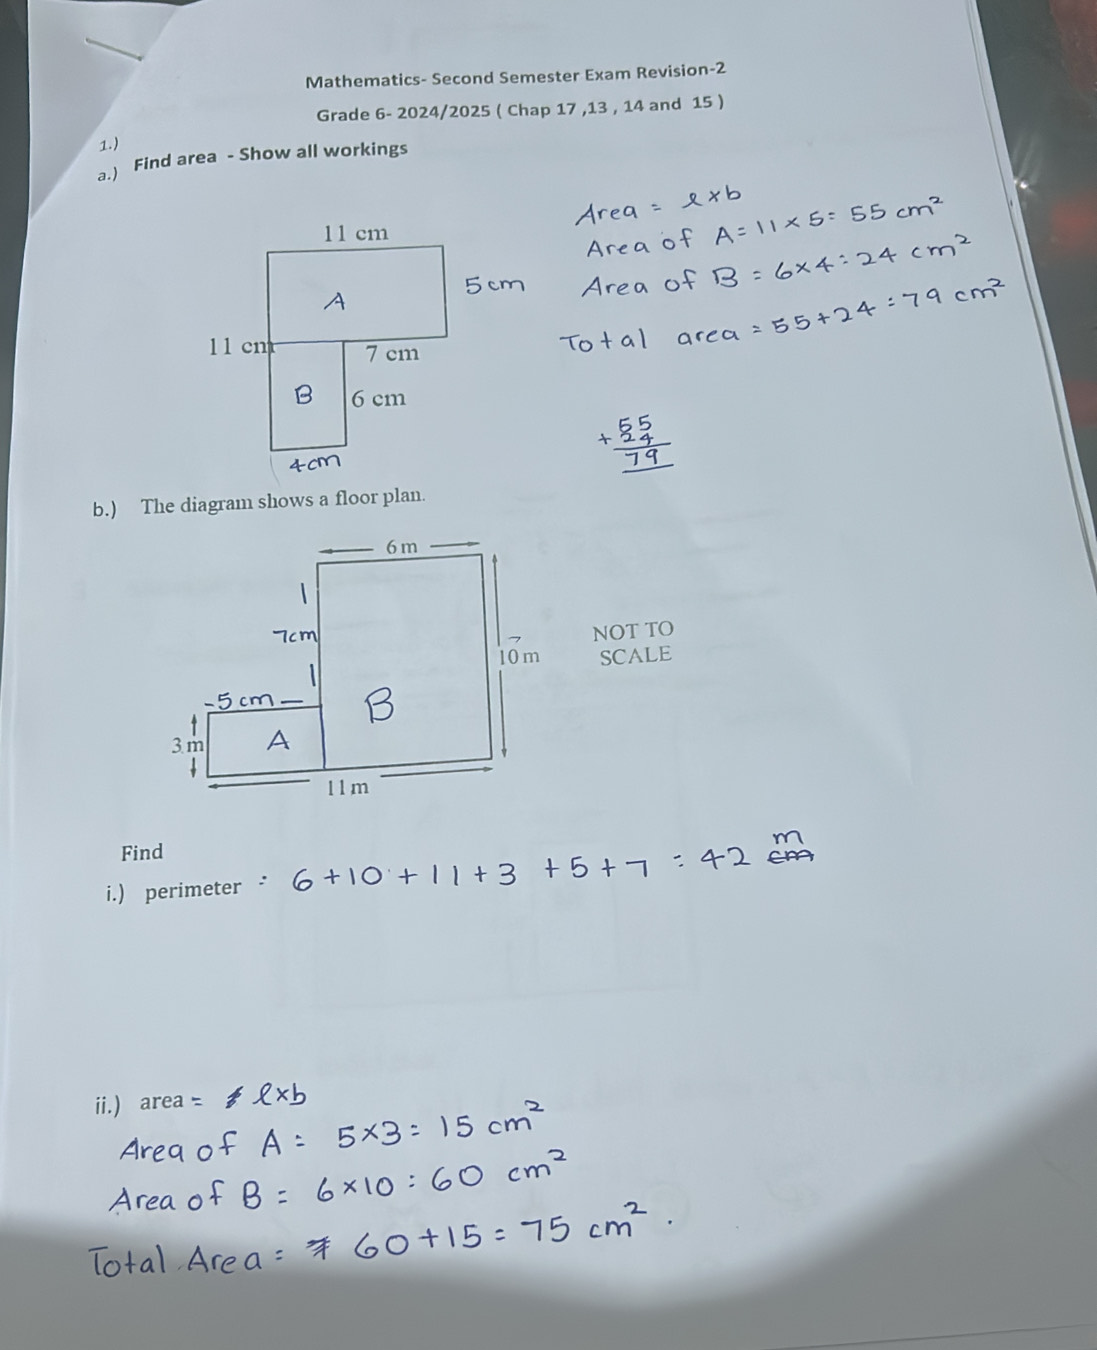 Mathematics- Second Semester Exam Revision-2
Grade 6- 2024/2025 ( Chap 17 ,13 , 14 and 15 )
1.)
a.) Find area - Show all workings
11 cm
A
5cm
11 cm
7 cm
B
6 cm
4cm
Area = l×b
Area of A = 11 × 5 = 55 cm²
Area of B = 6×4 = 24 cm²
Total area = 55+24 = 79 cm²
55
+ 24
79
b.) The diagram shows a floor plan.
6 m
7cm
10 m
NOT TO
SCALE
5cm
B
3 m
A
11 m
Find
i.) perimeter = 6+10+11+3+5+7 = 42 cm m
ii.) area = l×b
Area of A = 5×3 = 15 cm²
Area of B = 6×10 = 60 cm²
Total Area = 60+15 = 75 cm².